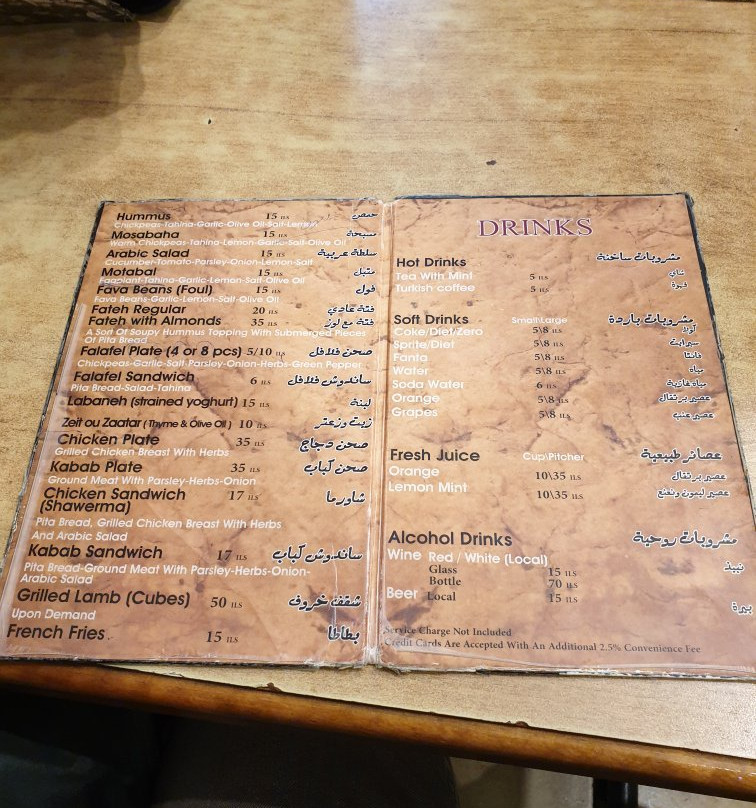 Hummus 15 ILS حمص
Chickpeas-Tahina-Garlic-Olive Oil-Salt-Lemon
Mosabaha 15 ILS مسبحة
Warm Chickpeas-Tahina-Lemon-Garlic-Salt-Olive Oil
Arabic Salad 15 ILS سلطة عربية
Cucumber-Tomato-Parsley-Onion-Lemon-Salt
Motabal 15 ILS متبل
Eggplant-Tahina-Garlic-Lemon-Salt-Olive Oil
Fava Beans (Foul) 15 ILS فول
Fava Beans-Garlic-Lemon-Salt-Olive Oil
Fateh Regular 20 ILS فتة عادي
Fateh with Almonds 35 ILS فتة مع لوز
A Sort Of Soupy Hummus Topping With Submerged Pieces
Of Pita Bread
Falafel Plate (4 or 8 pcs) 5/10 ILS صحن فلافل
Chickpeas-Garlic-Salt-Parsley-Onion-Herbs-Green Pepper
Falafel Sandwich 6 ILS ساندوش فلافل
Pita Bread-Salad-Tahina
Labaneh (strained yoghurt) 15 ILS لبنة
Zeit ou Zaatar ( Thyme & Olive Oil ) 10 ILS زيت وزعتر
Chicken Plate 35 ILS صحن دجاج
Grilled Chicken Breast With Herbs
Kabab Plate 35 ILS صحن كباب
Ground Meat With Parsley-Herbs-Onion
Chicken Sandwich 17 ILS شاورما
(Shawerma)
Pita Bread, Grilled Chicken Breast With Herbs
And Arabic Salad
Kabab Sandwich 17 ILS ساندوش كباب
Pita Bread-Ground Meat With Parsley-Herbs-Onion-
Arabic Salad
Grilled Lamb (Cubes) 50 ILS شقف خروف
Upon Demand
French Fries 15 ILS بطاطا
DRINKS
Hot Drinks مشروبات ساخنة
Tea With Mint 5 ILS شاي
Turkish coffee 5 ILS قهوة
Soft Drinks Small\Large مشروبات باردة
Coke/Diet/Zero 5\8 ILS كولا
Sprite/Diet 5\8 ILS سبرايت
Fanta 5\8 ILS فانتا
Water 5\8 ILS مياه
Soda Water 6 ILS مياه غازية
Orange 5\8 ILS عصير برتقال
Grapes 5\8 ILS عصير عنب
Fresh Juice Cup\Pitcher عصائر طبيعية
Orange 10\35 ILS عصير برتقال
Lemon Mint 10\35 ILS عصير ليمون ونعنع
Alcohol Drinks مشروبات روحية
Wine Red / White (Local) نبيذ
Glass 15 ILS
Bottle 70 ILS
Beer Local 15 ILS بيرة
Service Charge Not Included
Credit Cards Are Accepted With An Additional 2.5% Convenience Fee